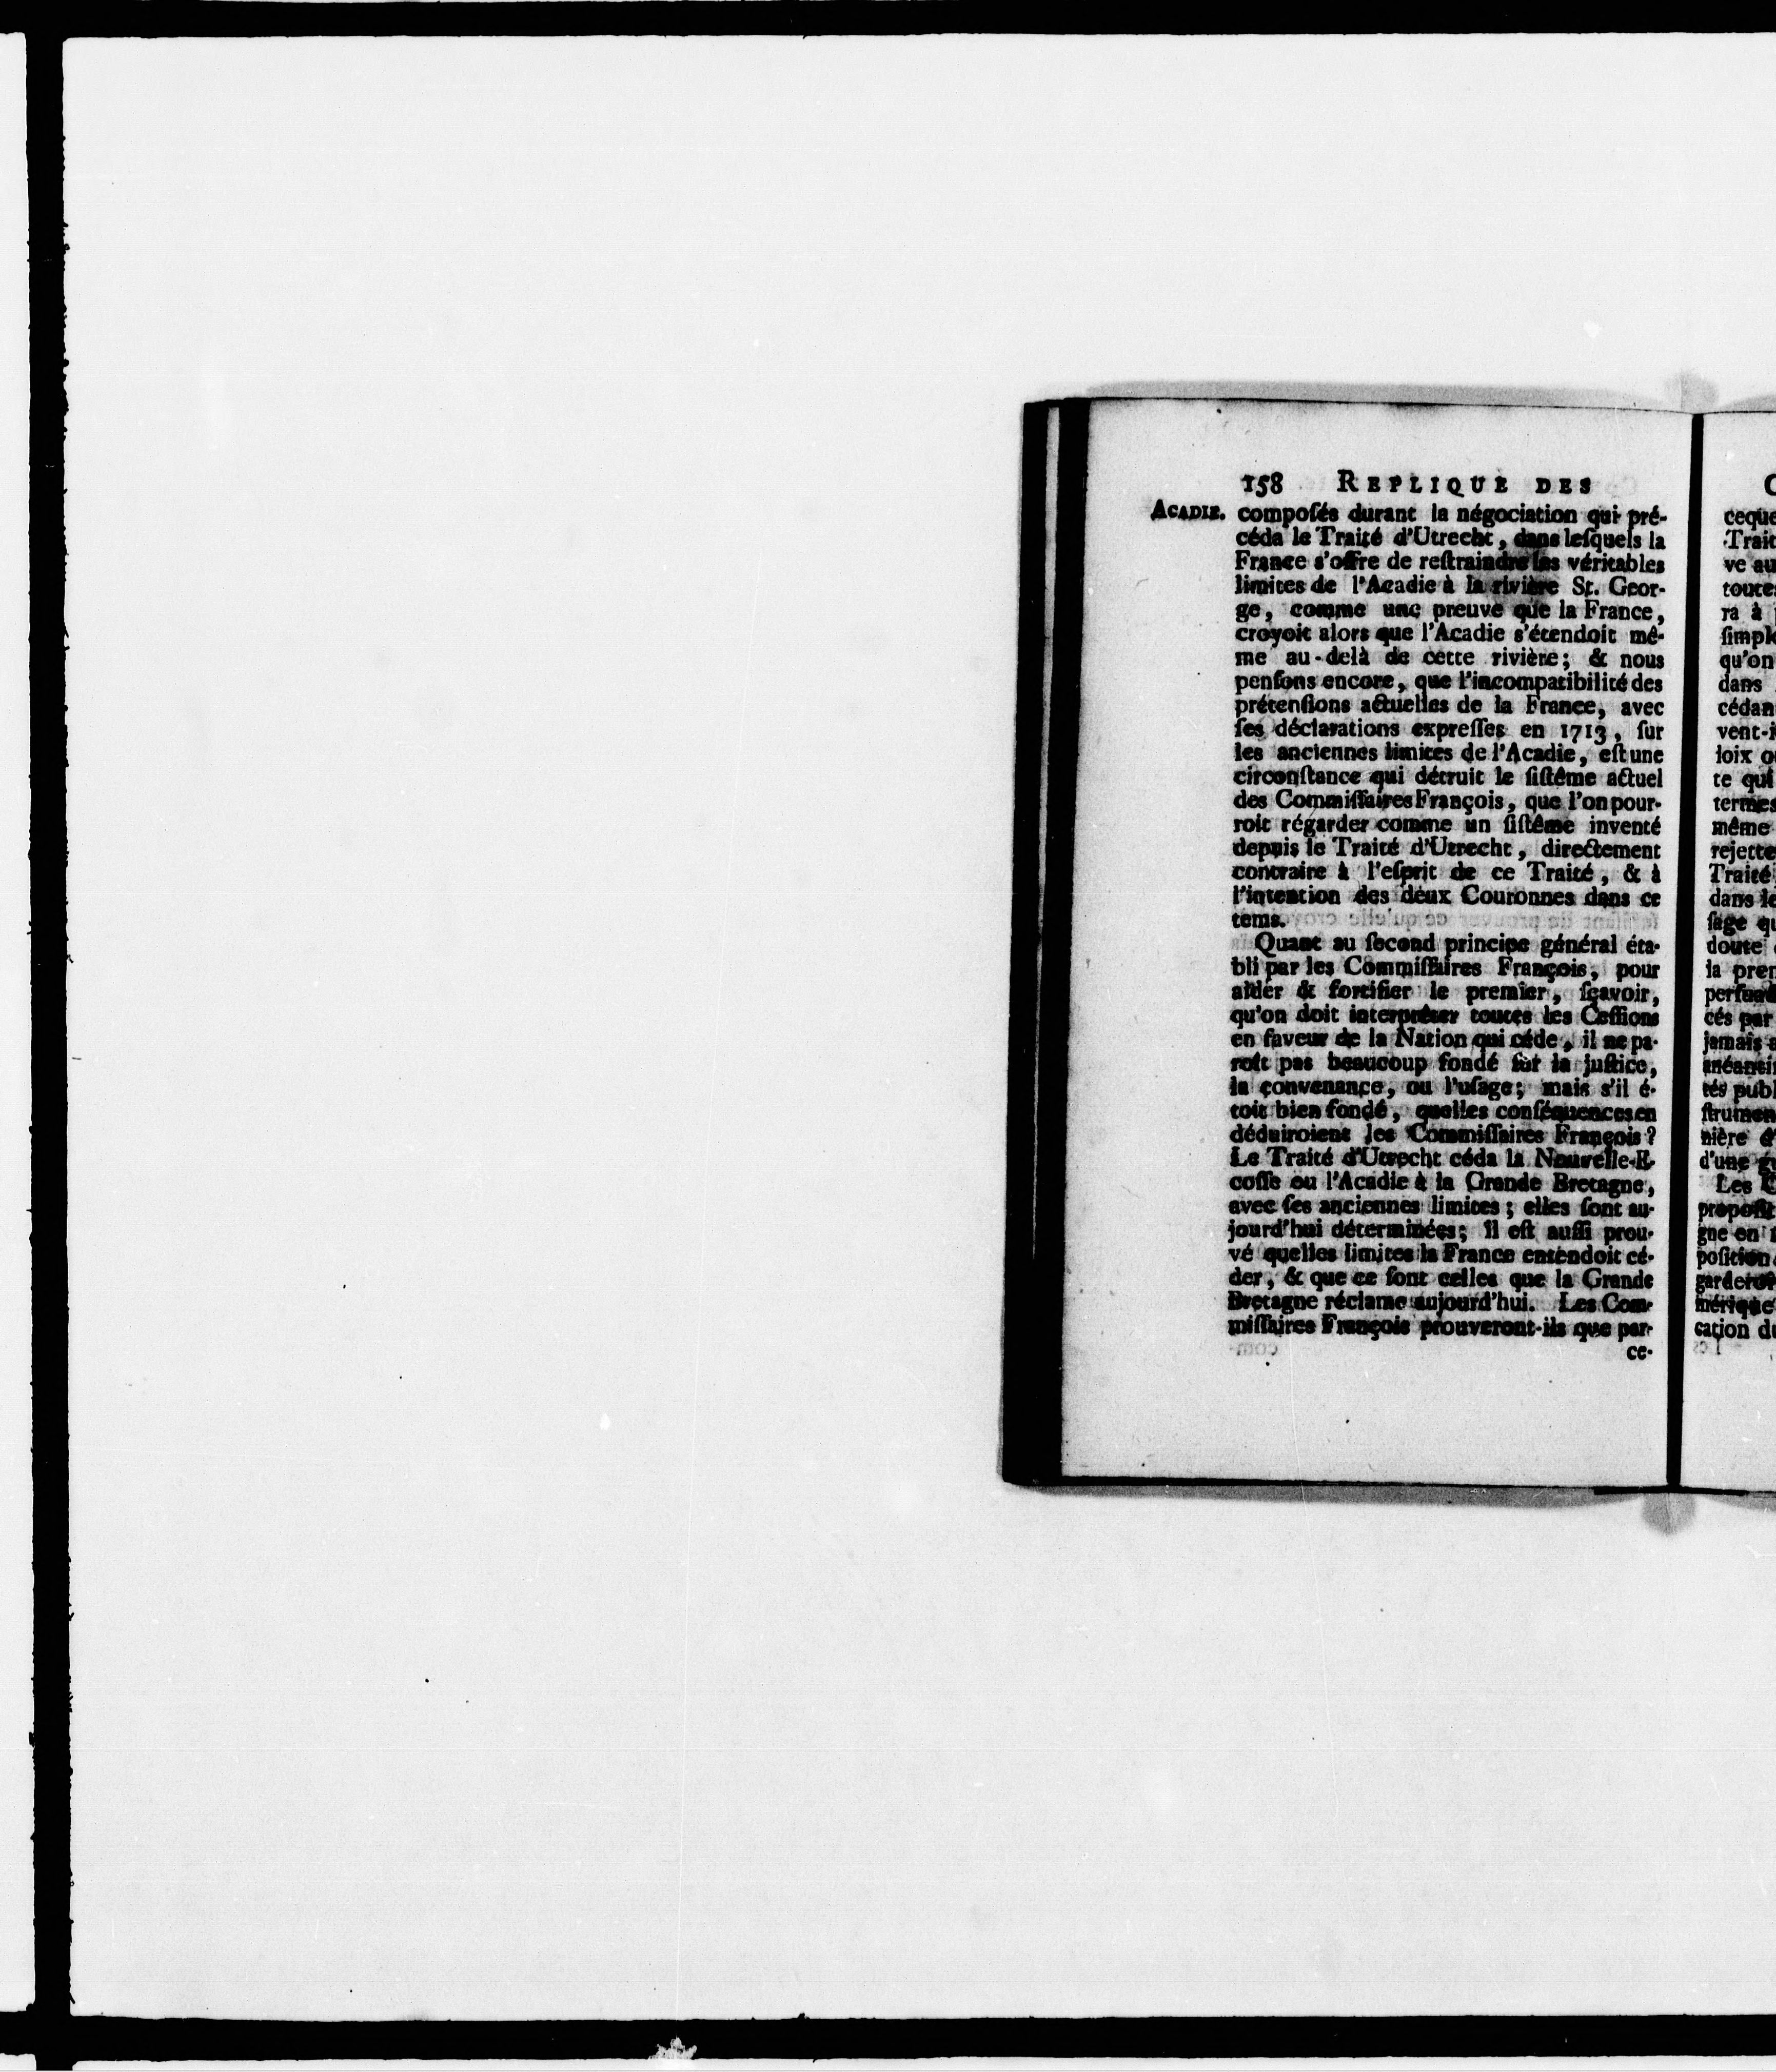 158 REPLIQUE DES
ACADIE. compoſés durant la négociation qui pré-
céda le Traité d'Utrecht, dans leſquels la
France s'offre de reſtraindre les véritables
limites de l'Acadie à la rivière St. Geor-
ge, comme une preuve que la France,
croyoit alors que l'Acadie s'étendoit mê-
me au-delà de cette rivière; & nous
penſons encore, que l'incompatibilité des
prétenſions actuelles de la France, avec
ſes déclarations expreſſes en 1713, ſur
les anciennes limites de l'Acadie, eſt une
circonſtance qui détruit le ſiſtême actuel
des Commiſſaires François, que l'on pour-
roit régarder comme un ſiſtême inventé
depuis le Traité d'Utrecht, directement
contraire à l'eſprit de ce Traité, & à
l'intention des deux Couronnes dans ce
tems.
Quant au ſecond principe général éta-
bli par les Commiſſaires François, pour
aider & fortifier le premier, ſçavoir,
qu'on doit interprêter toutes les Ceſſions
en faveur de la Nation qui céde, il ne pa-
roît pas beaucoup fondé ſur la juſtice,
la convenance, ou l'uſage; mais s'il é-
toit bien fondé, quelles conſéquences en
déduiroient les Commiſſaires François?
Le Traité d'Utrecht céda la Nouvelle-E-
coſſe ou l'Acadie à la Grande Bretagne,
avec ſes anciennes limites; elles ſont au-
jourd'hui déterminées; il eſt auſſi prou-
vé quelles limites la France entendoit cé-
der, & que ce ſont celles que la Grande
Bretagne réclame aujourd'hui. Les Com-
miſſaires François prouveront-ils que par-
ce-
ceque
Trait
ve au
toutes
ra à
ſimple
qu'on
dans
cédan
vent-i
loix o
te qui
termes
même
rejette
Traité
dans le
ſage qu
doute
la prem
perſuad
cés par
jamais
anéanti
tés publ
ſtrumen
nière d'
d'une gu
Les C
propoſit
gne en 1
poſition
garderoi
mérique
cation du